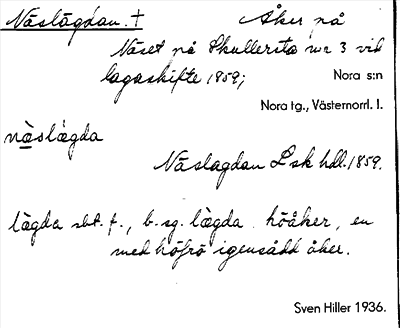 Näslägdan. † Åker på
Näset på Skullersta nr 3 vid
lagaskifte 1859;
Nora s:n
Nora tg., Västernorrl. l.
näslägda
Näslagdan Lsk hdl. 1859.
lägda sbt. f., b. sg. lägda höåker, en
med höfrö igensådd åker.
Sven Hiller 1936.